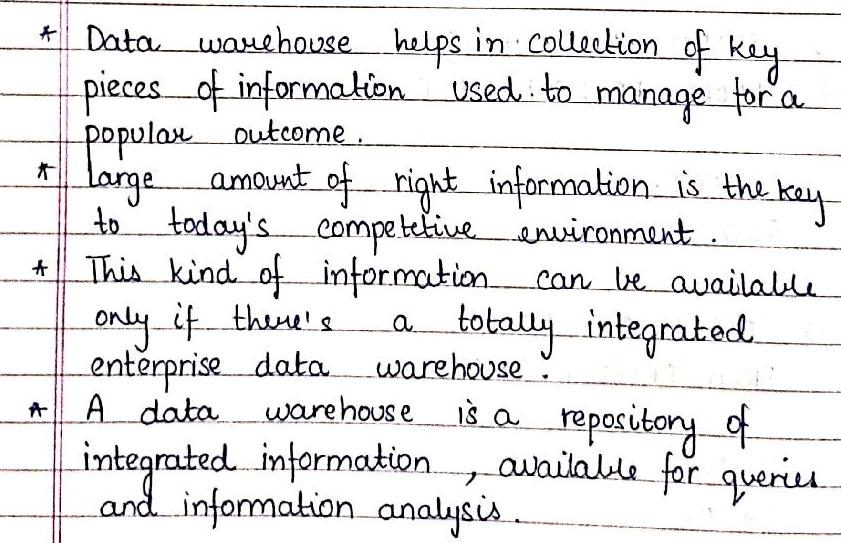 * Data warehouse helps in collection of key
pieces of information used to manage for a
popular outcome.
* Large amount of right information is the key
to today's competetive environment.
* This kind of information can be available
only if there's a totally integrated
enterprise data warehouse.
* A data warehouse is a repository of
integrated information, available for queries
and information analysis.